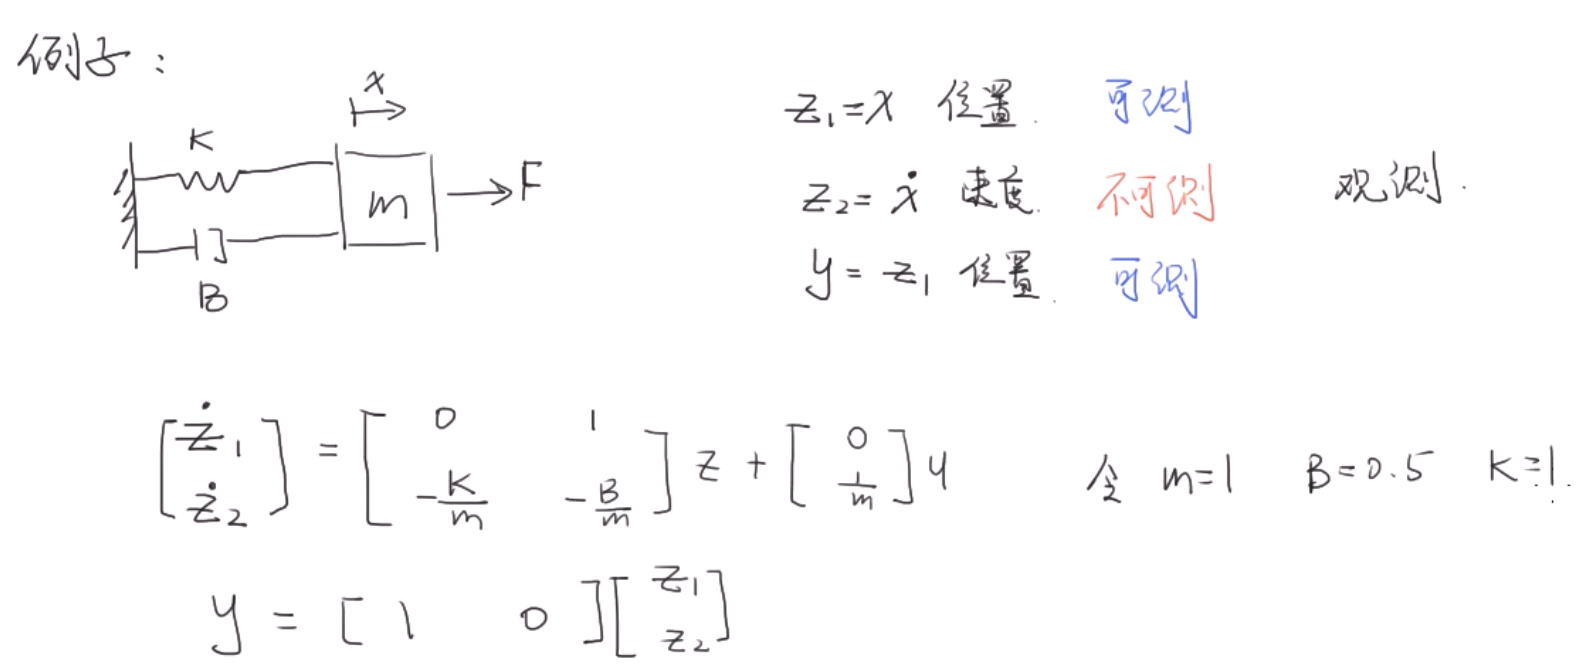 例子：
x
K
m
F
B
z₁=x 位置. 可测
z₂=ẋ 速度. 不可测 观测.
y=z₁ 位置. 可测
[ż₁ ż₂] = [0 1 -K/m -B/m] z + [0 1/m] u 令 m=1 B=0.5 K=1.
y = [1 0][z₁ z₂]